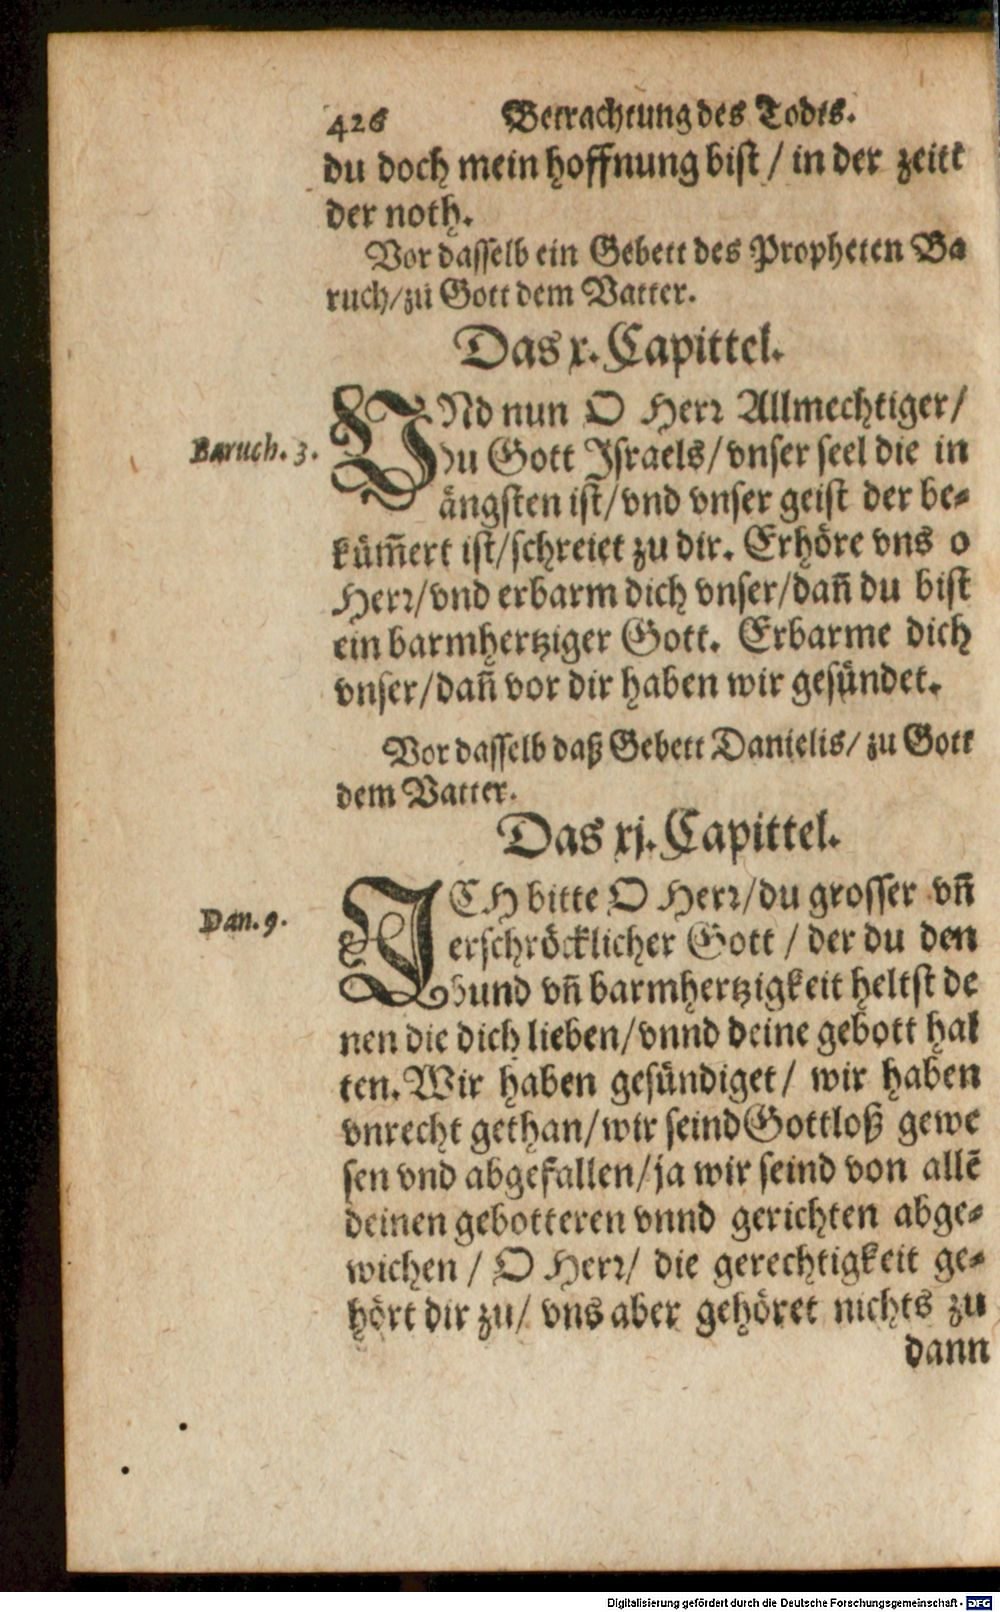 426 Betrachtung des Todts.
du doch mein hoffnung bist / in der zeitt
der noth.
Vor dasselb ein Gebett des Propheten Ba
ruch/zu Gott dem Vatter.
Das x. Capittel.
VNd nun O Herr Allmechtiger/
Baruch. 3.
Du Gott Israels/vnser seel die in
ängsten ist/vnd vnser geist der be-
küm̃ert ist/schreiet zu dir. Erhöre vns o
Herr/vnd erbarm dich vnser/dañ du bist
ein barmhertziger Gott. Erbarme dich
vnser/dañ vor dir haben wir gesündet.
Vor dasselb daß Gebett Danielis/ zu Gott
dem Vatter.
Das xj. Capittel.
ICH bitte O Herr/du grosser vñ
Dan. 9.
erschröcklicher Gott / der du den
bund vñ barmhertzigkeit heltst de
nen die dich lieben/vnnd deine gebott hal
ten. Wir haben gesündiget/ wir haben
vnrecht gethan/wir seind Gottloß gewe
sen vnd abgefallen/ja wir seind von allē
deinen gebotteren vnnd gerichten abge-
wichen / O Herr/ die gerechtigkeit ge-
hört dir zu/ vns aber gehöret nichts zu
dann
Digitalisierung gefördert durch die Deutsche Forschungsgemeinschaft - DFG